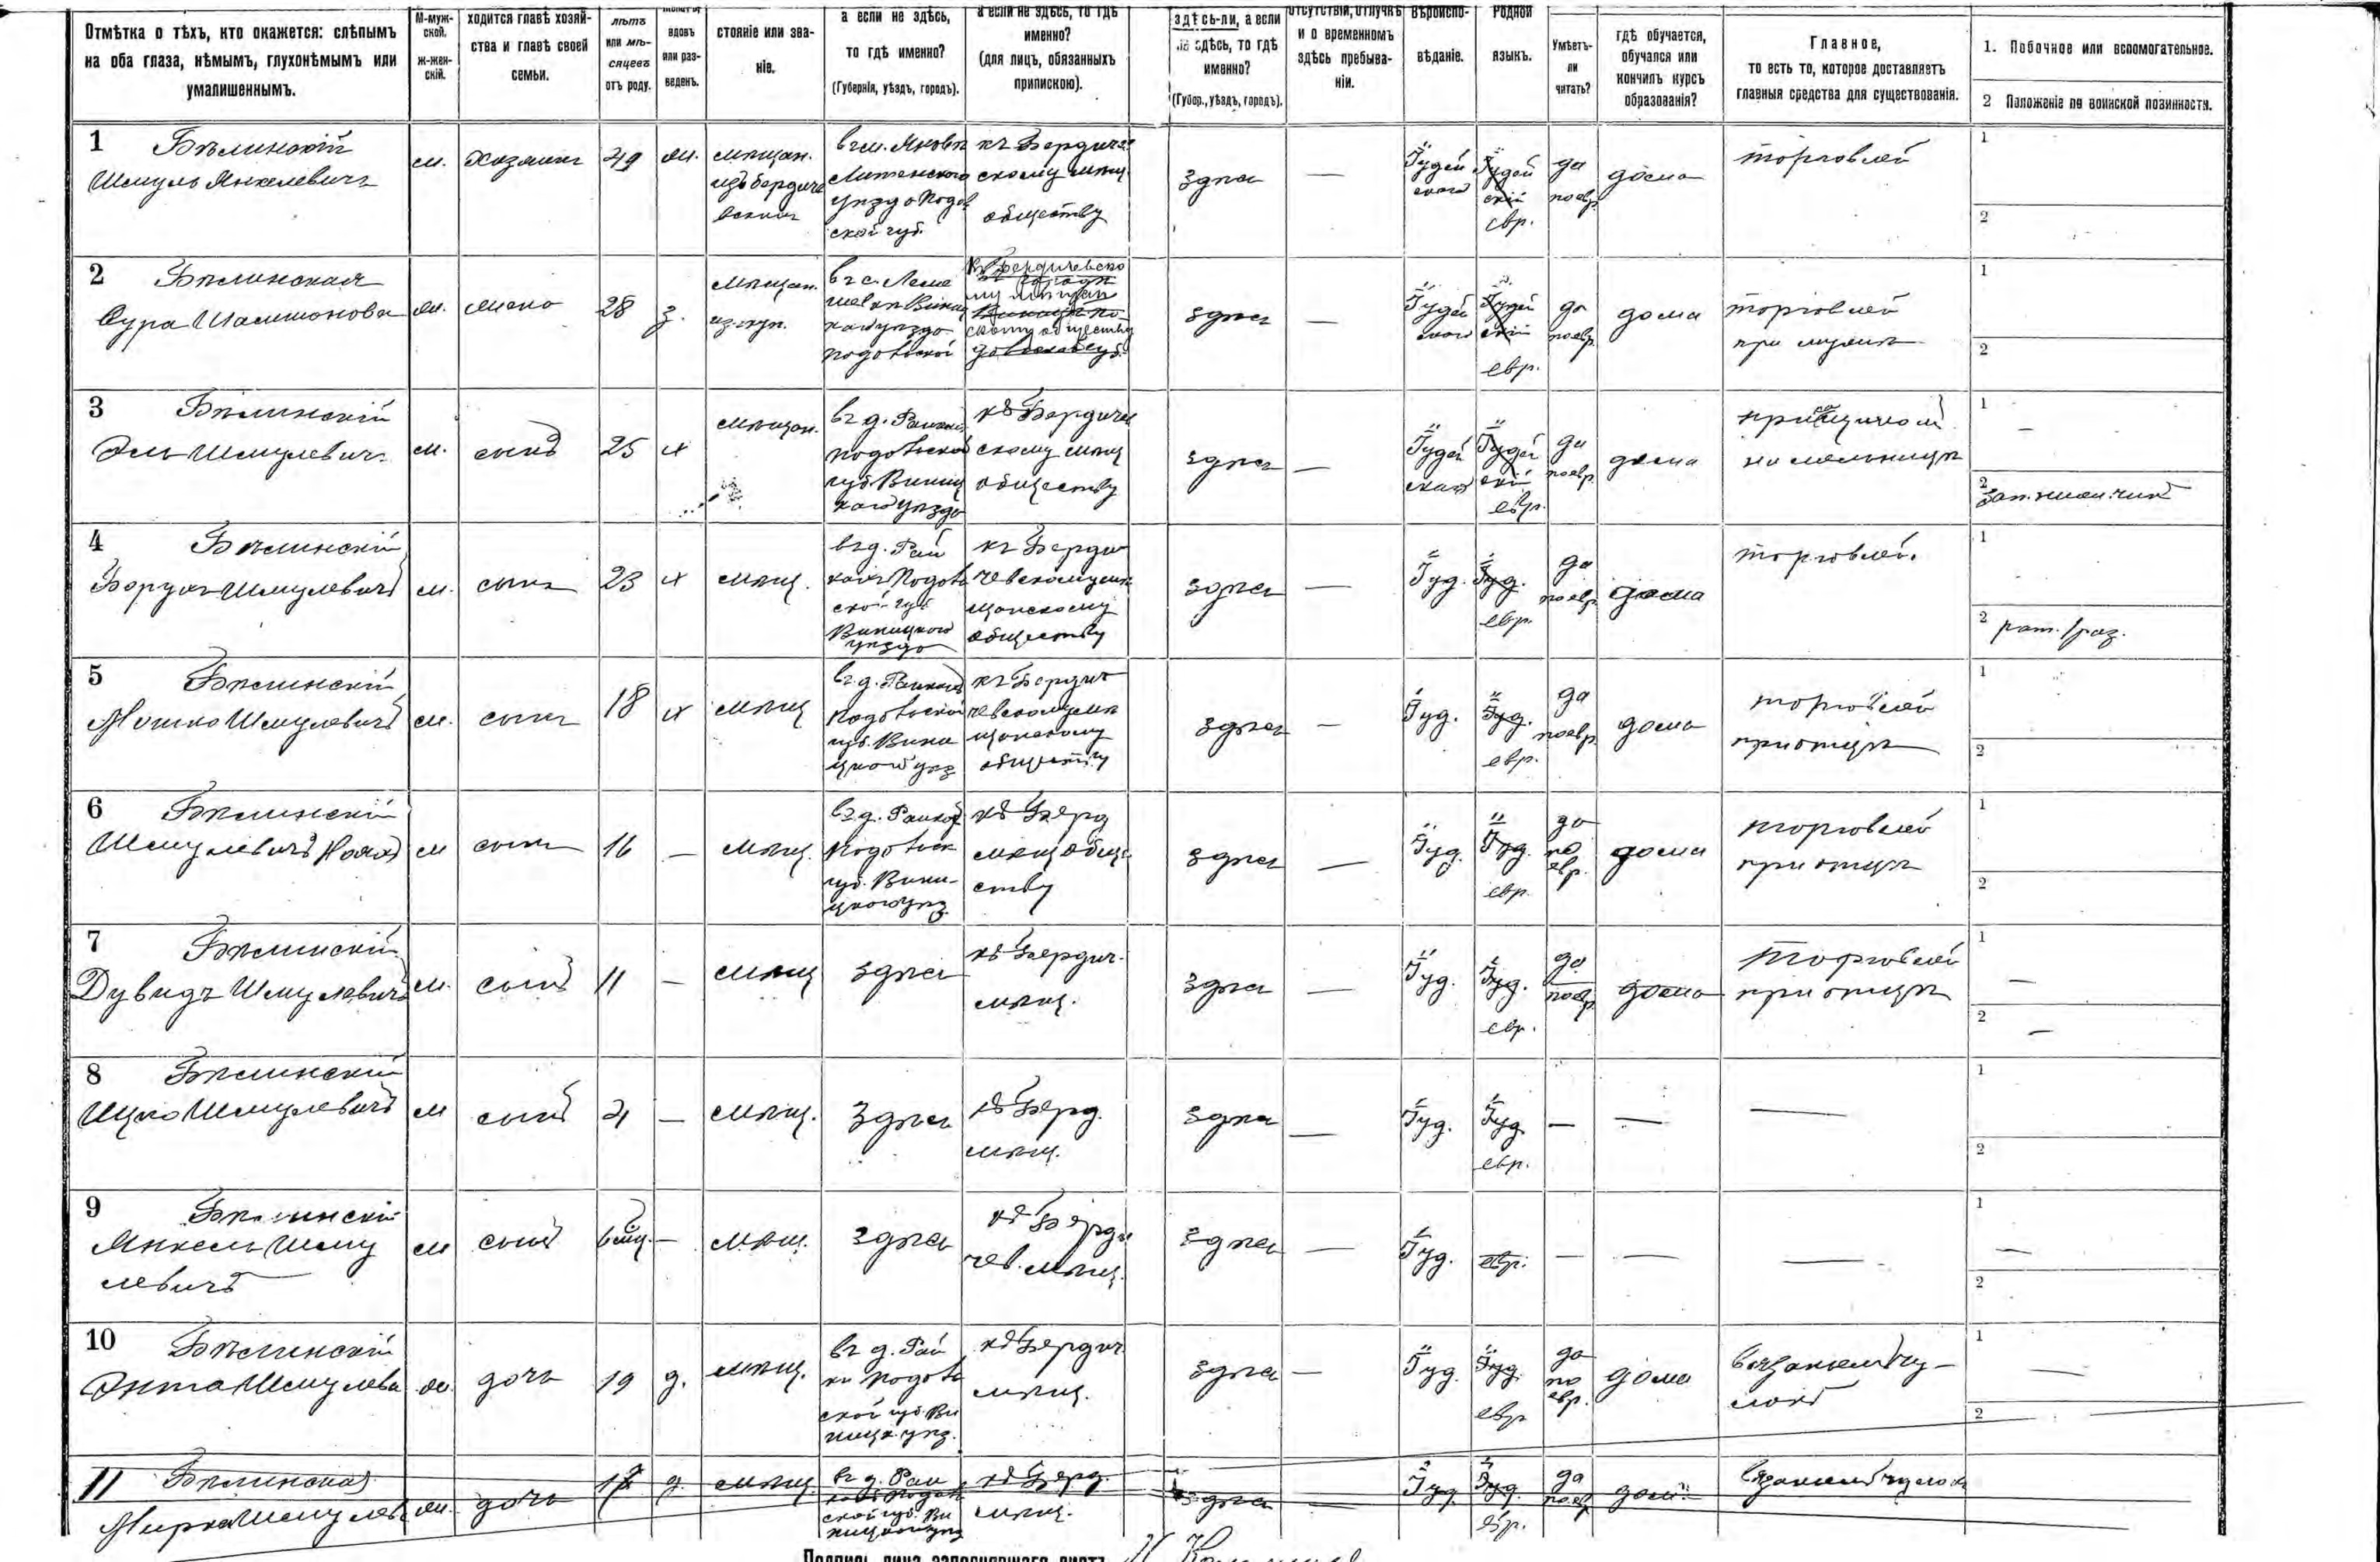 Отмѣтка о тѣхъ, кто окажется: слѣпымъ
на оба глаза, нѣмымъ, глухонѣмымъ или
умалишеннымъ.
М-муж-
ской.
Ж-жен-
скій.
ходится главѣ хозяй-
ства и главѣ своей
семьи.
лѣтъ
или мѣ-
сяцевъ
отъ роду.
вдовъ
или раз-
веденъ.
стояніе или зва-
ніе.
а если не здѣсь,
то гдѣ именно?
(Губернія, уѣздъ, городъ).
а если не здѣсь, то гдѣ
именно?
(для лицъ, обязанныхъ
припискою).
здѣсь-ли, а если
не здѣсь, то гдѣ
именно?
(Губер., уѣздъ, городъ).
отсутствіи, отлучкѣ
и о временномъ
здѣсь пребыва-
ніи.
Вѣроиспо-
вѣданіе.
Родной
языкъ.
Умѣетъ-
ли
читать?
гдѣ обучается,
обучался или
кончилъ курсъ
образованія?
Главное,
то есть то, которое доставляетъ
главныя средства для существованія.
1. Побочное или вспомогательное.
2 Положеніе по воинской повинности.
1 Бѣлинскій
Шмуль Янкелевичъ
м.
хозяинъ
49
ж.
мѣщан.
изъ бердиче
вскихъ
Литинского
уѣзда Подол
ской губ.
къ Бердичев
скому мѣщ.
обществу
здѣсь
—
Іудей
ского
Іудей
скій
евр.
да
по евр.
дома
торговлей
1
2
2 Бѣлинская
Сура Шлимонова
ж.
жена
28
з.
мѣщан.
въ с.
подольской
Къ бердичевско
му мѣщан
скому обществу
здѣсь
—
Іудей
ского
Іудей
скій
евр.
да
по евр.
дома
торговлей
при мужѣ
1
2
3 Бѣлинскій
Эль Шмулевичъ
м.
сынъ
25
х
мѣщан.
въ д. Райкахъ
подольской
губ. Виниц
каго уѣзда
къ Бердичев
скому мѣщ
обществу
здѣсь
—
Іудей
ского
Іудей
скій
евр.
да
по евр.
дома
на мельницѣ
1
—
2
4 Бѣлинскій
Борухъ Шмулевичъ
м.
сынъ
23
х
мѣщ.
въ д. Рай
кахъ Подоль
ской губ
Виницкого
уѣзда
къ Берди
чевскому мѣ
щанскому
обществу
здѣсь
—
Іуд.
Іуд.
евр.
да
по евр
дома
торговлей.
1
2 рат. 1 раз.
5 Бѣлинскій
Мошко Шмулевичъ
м.
сынъ
18
х
мѣщ
въ д. Райкахъ
подольской
губ. Вини
цкого уѣз
къ Берди
чевскому мѣ
щанскому
обществу
здѣсь
—
Іуд.
Іуд.
евр.
да
по евр.
дома
торговлей
при отцѣ
1
2
6 Бѣлинскій
Шмулевичъ
м
сынъ
16
—
мѣщ.
въ д. Райкахъ
подольск
губ. Вини-
цкого уѣз
къ Берд
мѣщ обще
ству
здѣсь
—
Іуд.
Іуд.
евр.
да
по
евр.
дома
торговлей
при отцѣ
1
2
7 Бѣлинскій
Дувидъ Шмулевичъ
м.
сынъ
11
—
мѣщ
здѣсь
къ Бердич.
мѣщ.
здѣсь
—
Іуд.
Іуд.
евр.
да
по евр
дома
торговлей
при отцѣ
1
—
2
—
8 Бѣлинскій
Ицко Шмулевичъ
м
сынъ
4
—
мѣщ.
здѣсь
къ Берд.
мѣщ.
здѣсь
—
Іуд.
Іуд
евр.
—
—
—
1
2
9 Бѣлинскій
Янкель Шму
левичъ
м
сынъ
6 мѣц.
—
мѣщ.
здѣсь
къ Берди
чев. мѣщ.
здѣсь
—
Іуд.
евр.
—
—
—
1
—
2
10 Бѣлинскій
Энта Шмулева
ж.
дочь
19
д.
мѣщ.
въ д. Рай
ки Подоль
ской губ. Ви
ницк. уѣз.
къ Бердич
мѣщ.
здѣсь
—
Іуд.
Іуд.
евр
да
по
евр.
дома
вязаніемъ чу-
локъ
1
—
2
11 Бѣлинская
Мирка Шмулев
ж.
дочь
д.
мѣщ.
въ д. Рай
ской губ. Ви
къ Берд.
мѣщ.
здѣсь
Іуд
Іуд.
евр.
да
по евр
дом.
вязаніемъ чулокъ
Подпись лица заполнявшаго листъ